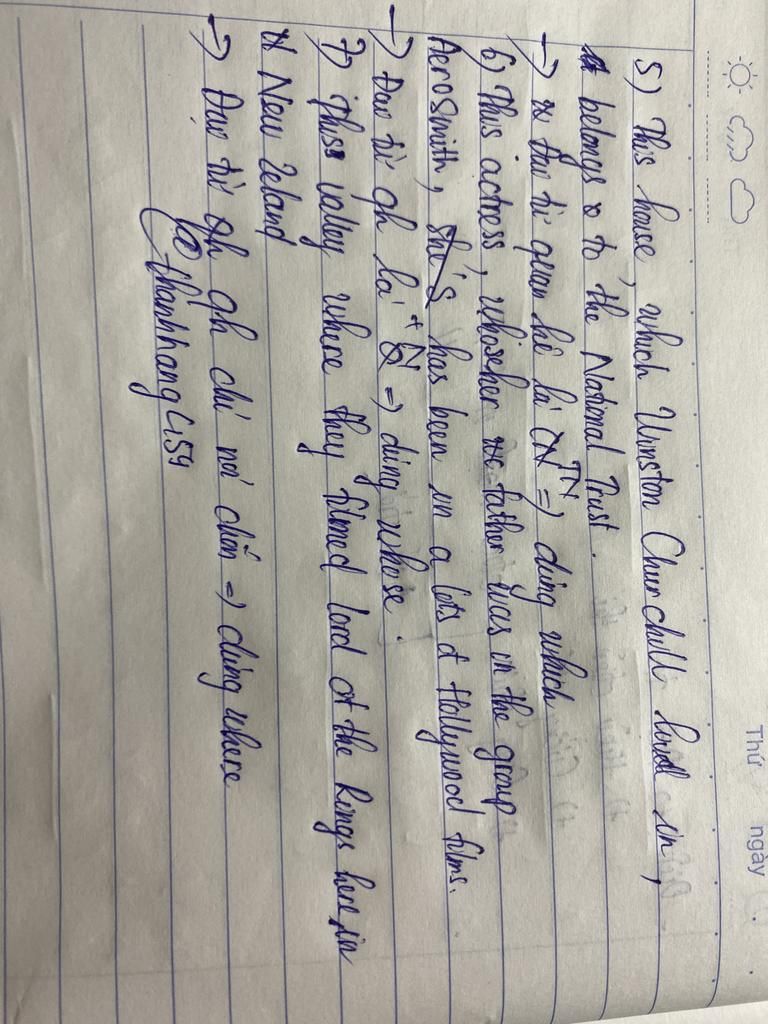 Thứ ngày
5) This house, which Winston Churchill lived in,
belongs to the National Trust.
→ Đại từ quan hệ là TN => dùng which
6) This actress, whose father was in the group
Aerosmith, has been in a lots of Hollywood films.
→ Đại từ qh là + N => dùng whose.
7) This valley where they filmed lord of the Rings here in
New Zeland
→ Đại từ qh chỉ nơi chốn => dùng where
@thanhhang4159